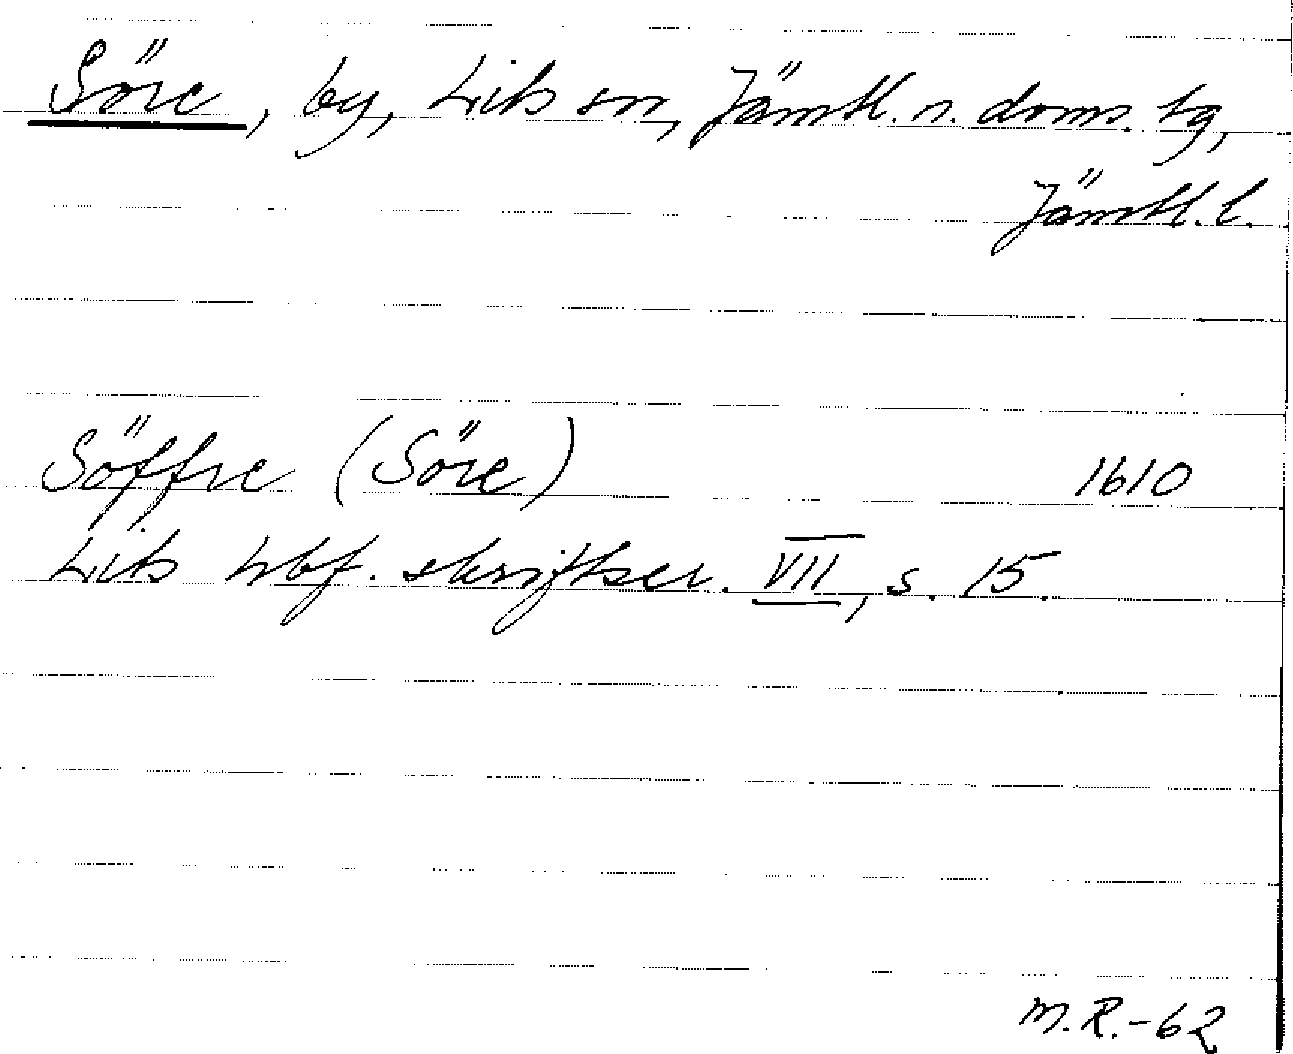 Söre, by, Lits sn, Jämtl. n. doms. tg,
Jämtl. l.
Söffre (Söre) 1610
Lits hbf. skriftser. VII, s. 15.
M.R.-62